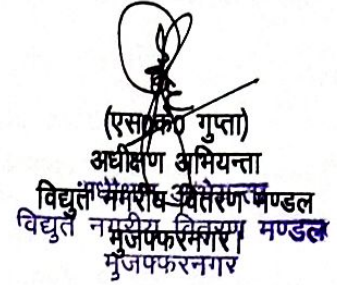 (एस०के० गुप्ता)
अधीक्षण अभियन्ता
विद्युत नगरीय वितरण मण्डल
मुजफ्फरनगर।
अधीक्षण अभियन्ता
विद्युत नगरीय वितरण मण्डल
मुजफ्फरनगर